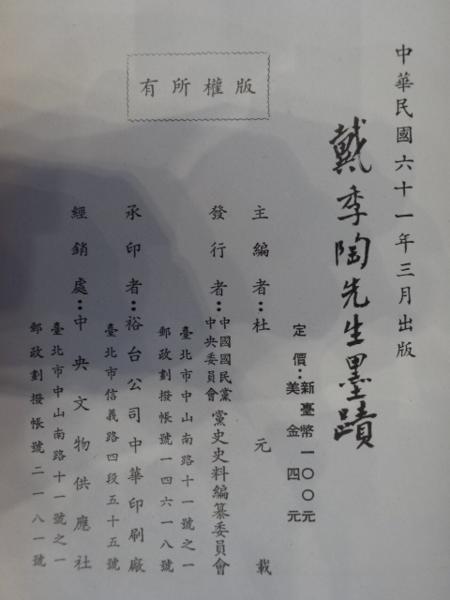 中華民國六十一年三月出版
戴季陶先生墨蹟
定價：新臺幣一〇〇元
美金四元
主編者：杜元載
發行者：中國國民黨中央委員會黨史史料編纂委員會
臺北市中山南路十一號之一
郵政劃撥帳號一四六一八號
承印者：裕台公司中華印刷廠
臺北市信義路四段五十五號
經銷處：中央文物供應社
臺北市中山南路十一號之一
郵政劃撥帳號二一八一號
版權所有